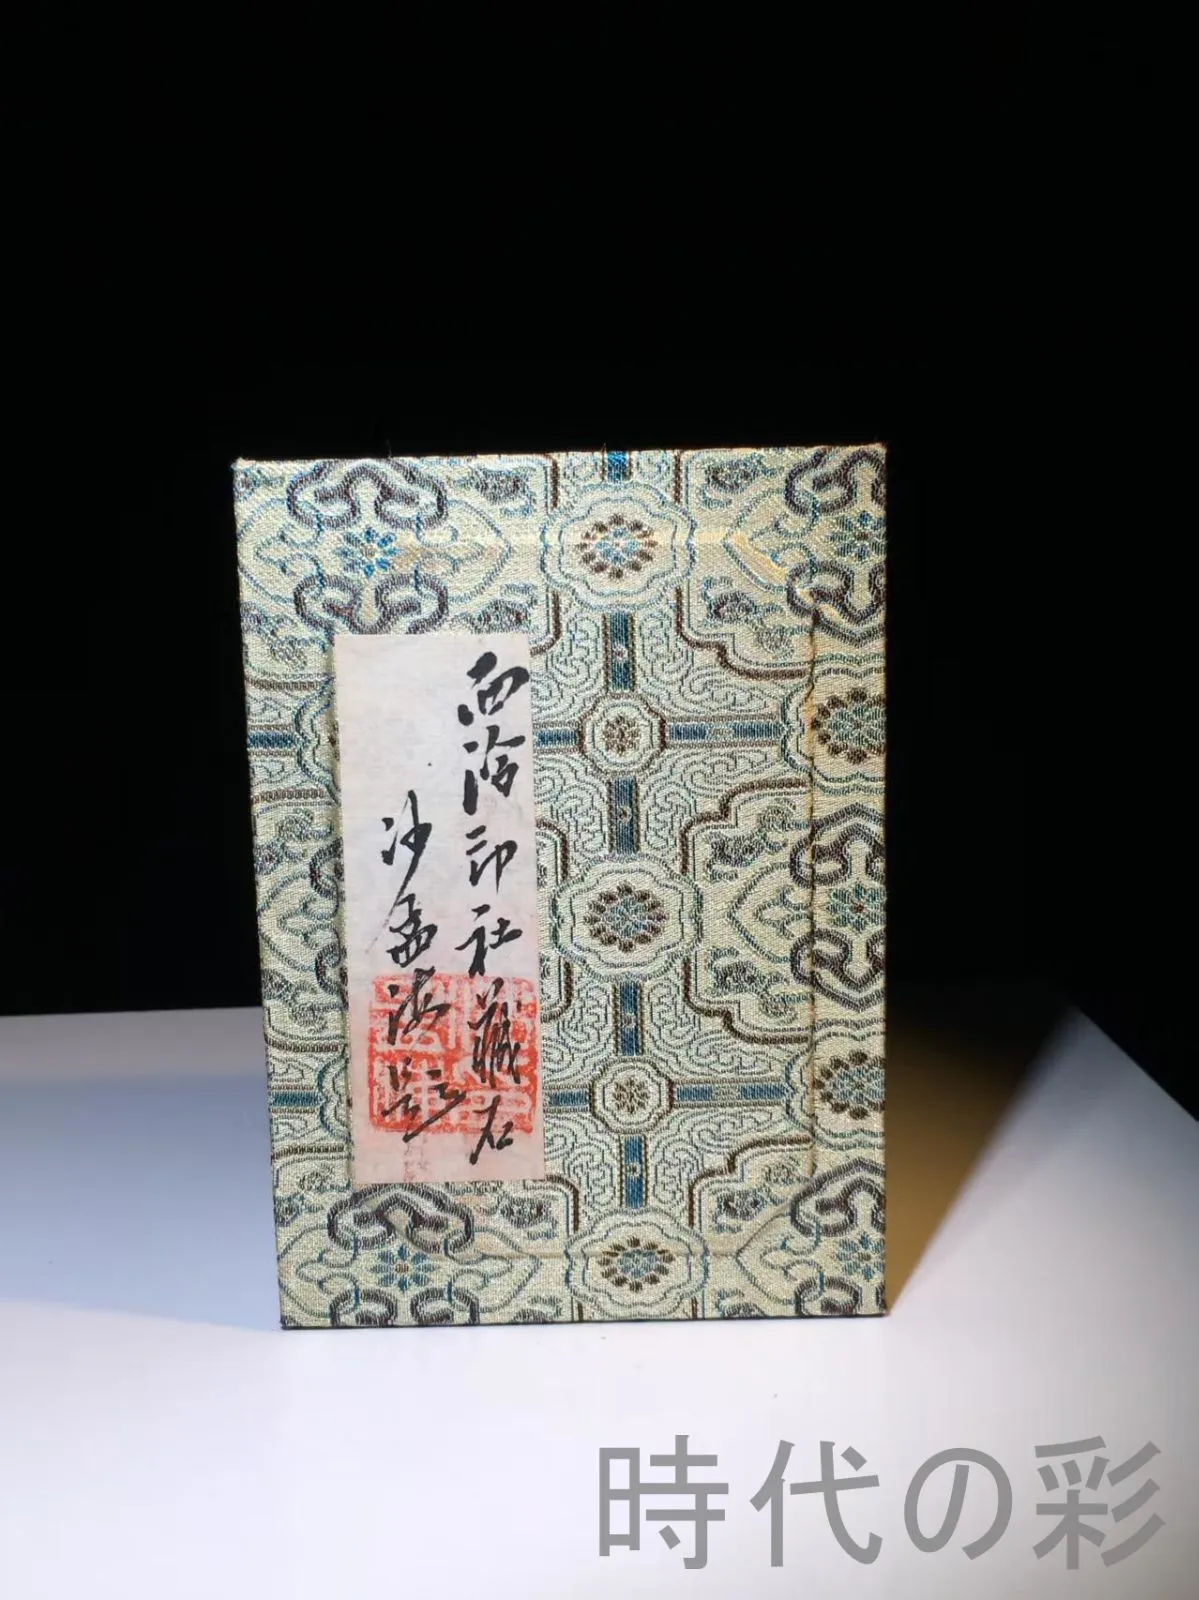 西泠印社藏石
沙孟海題
時代の彩